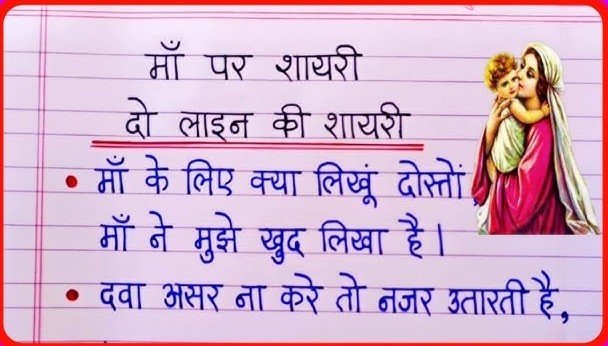 माँ पर शायरी
दो लाइन की शायरी
• माँ के लिए क्या लिखूं दोस्तों,
माँ ने मुझे खुद लिखा है।
• दवा असर ना करे तो नजर उतारती है,